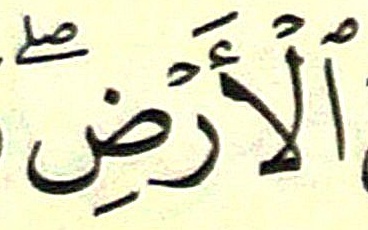 ٱلْأَرْضِ ۖ